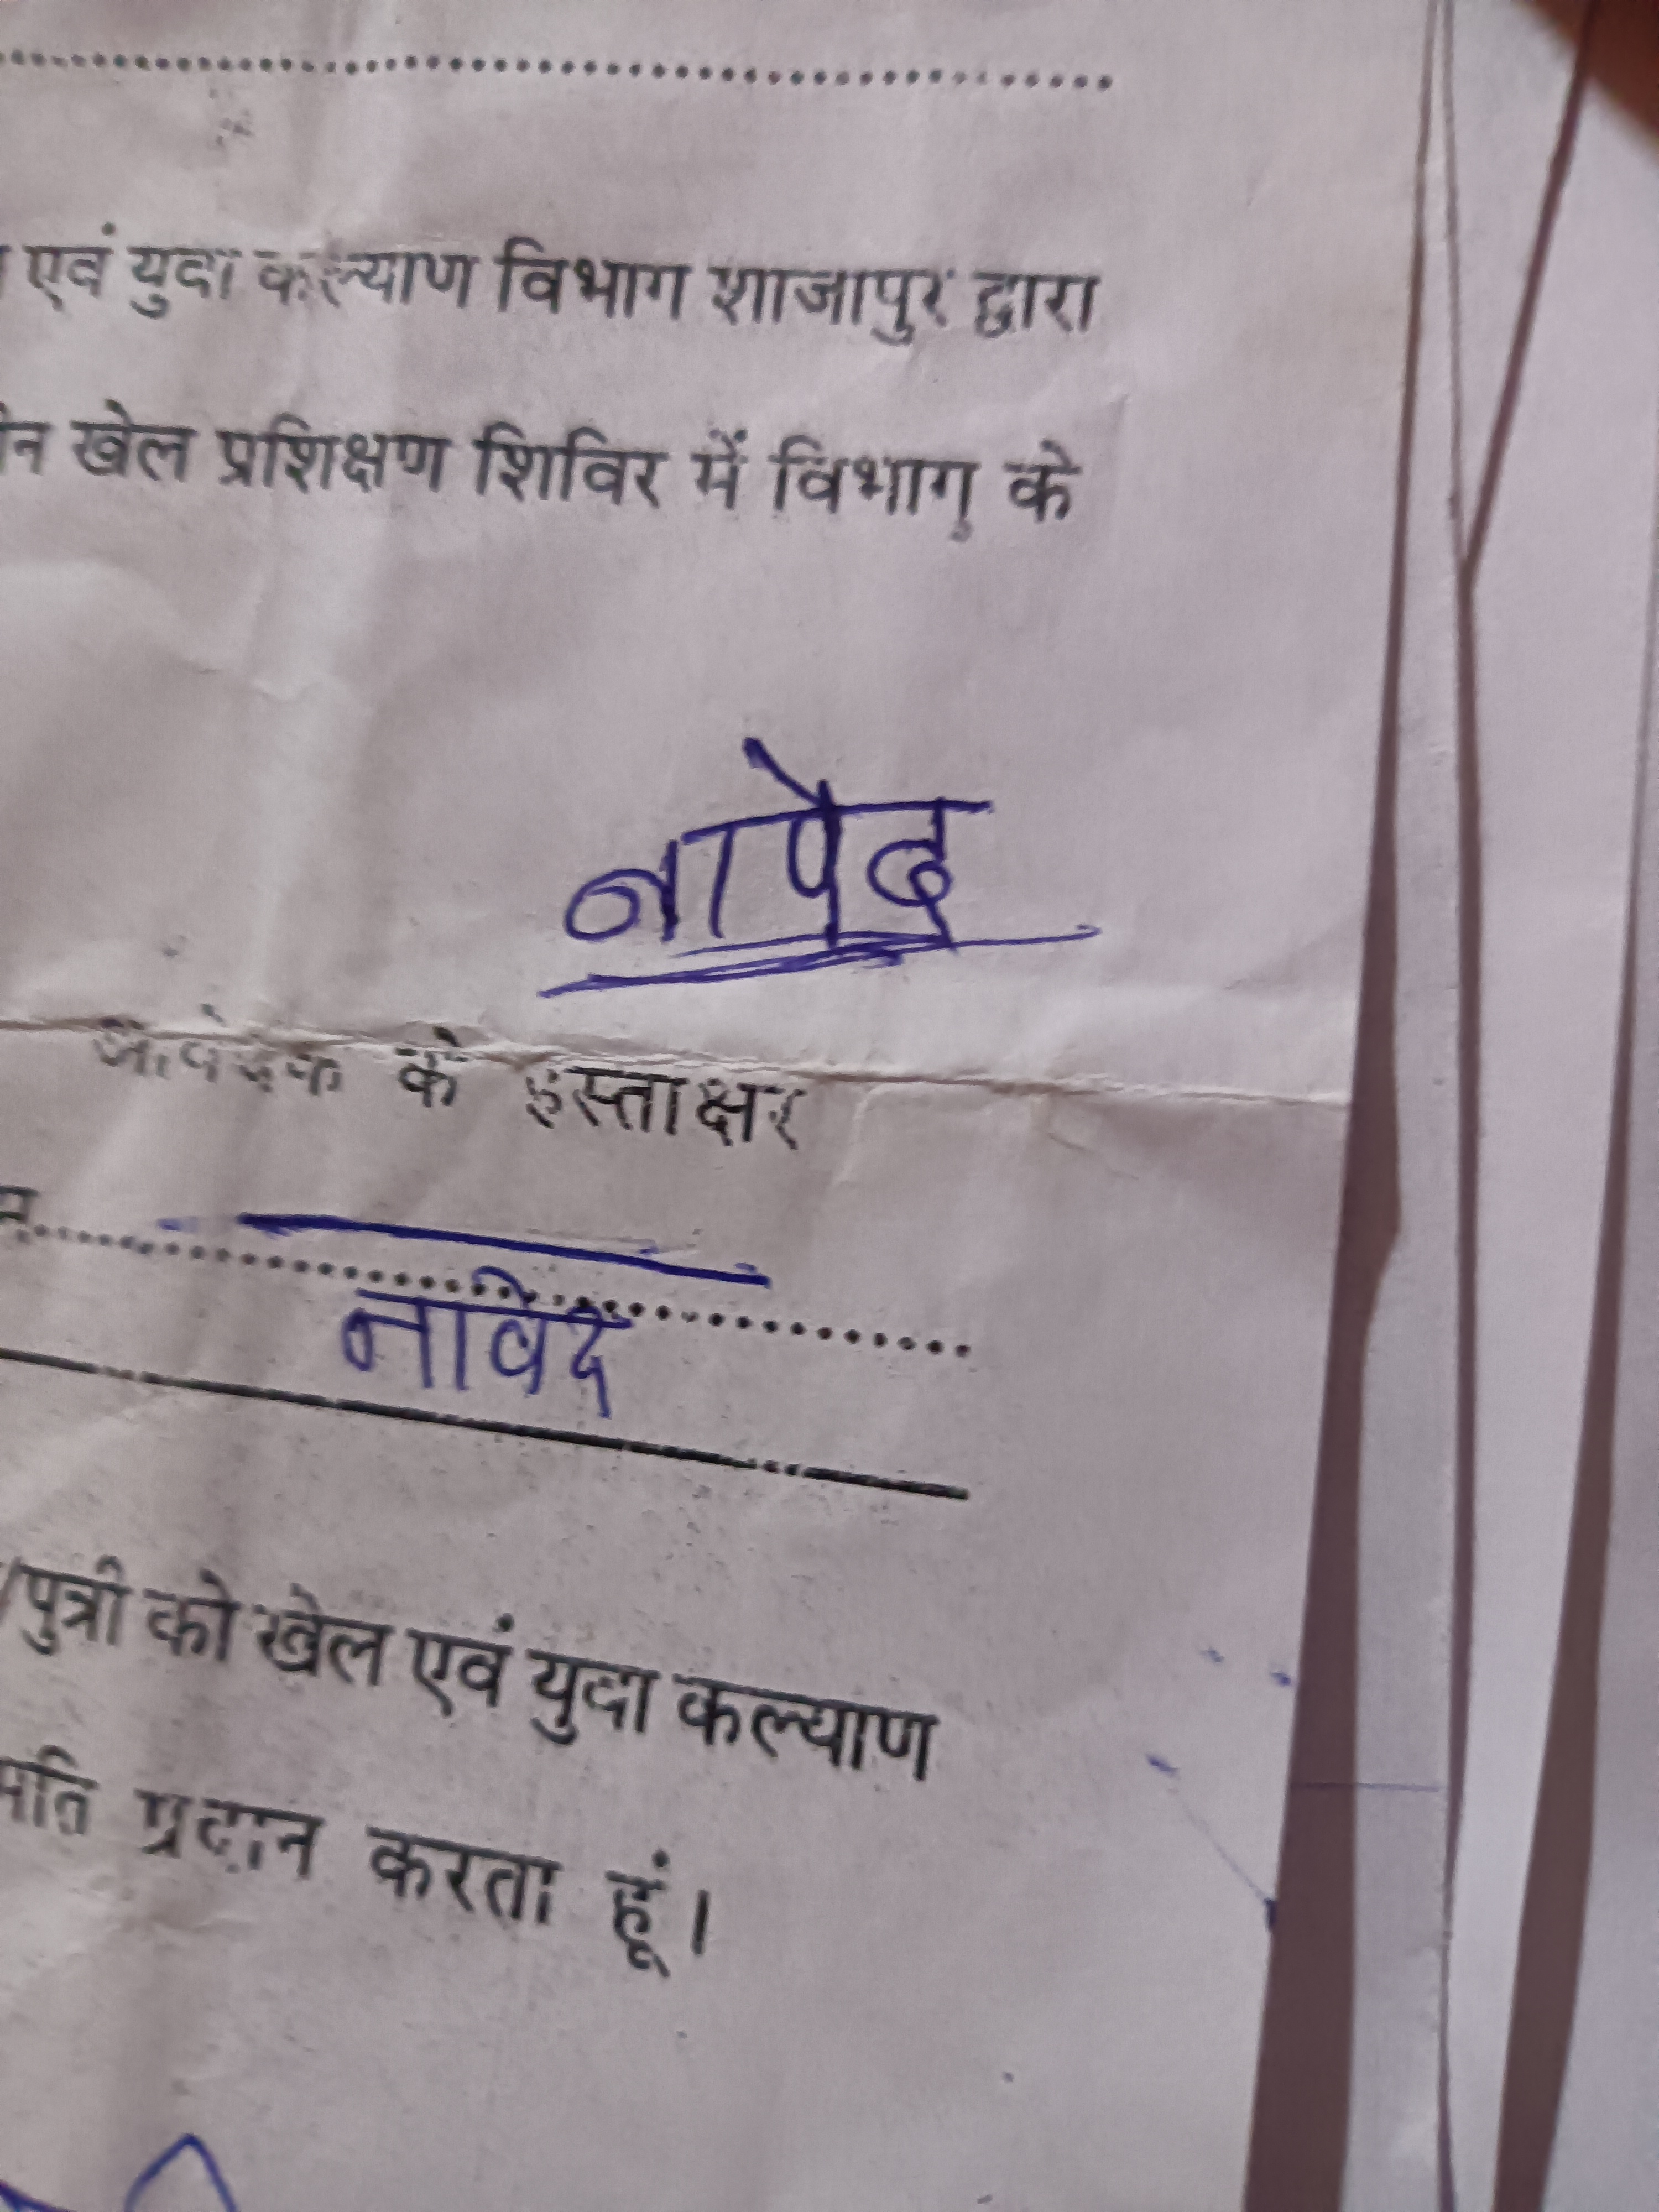 एवं युवा कल्याण विभाग शाजापुर द्वारा
खेल प्रशिक्षण शिविर में विभाग के
नापेद
आवेदक के हस्ताक्षर
नावेद
/पुत्री को खेल एवं युवा कल्याण
प्रदान करता हूं।